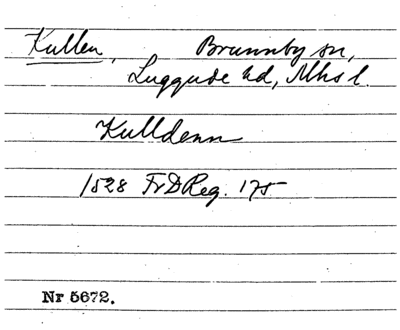 Kullen, Brunnby sn,
Luggude hd, Mhs l.
Kulldenn
1528 FrDReg. 175
Nr 5672.